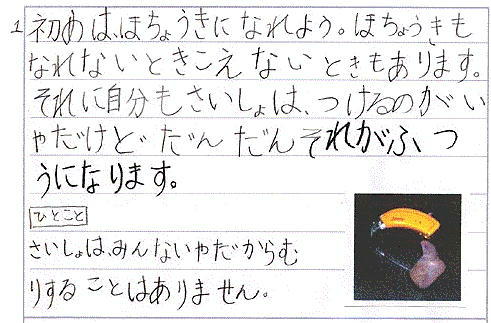 1 初めは、ほちょうきになれよう。ほちょうきも
なれないときこえないときもあります。
それに自分もさいしょは、つけるのがい
やだけど、だんだんそれがふつ
うになります。
ひとこと
さいしょは、みんないやだからむ
りすることはありません。